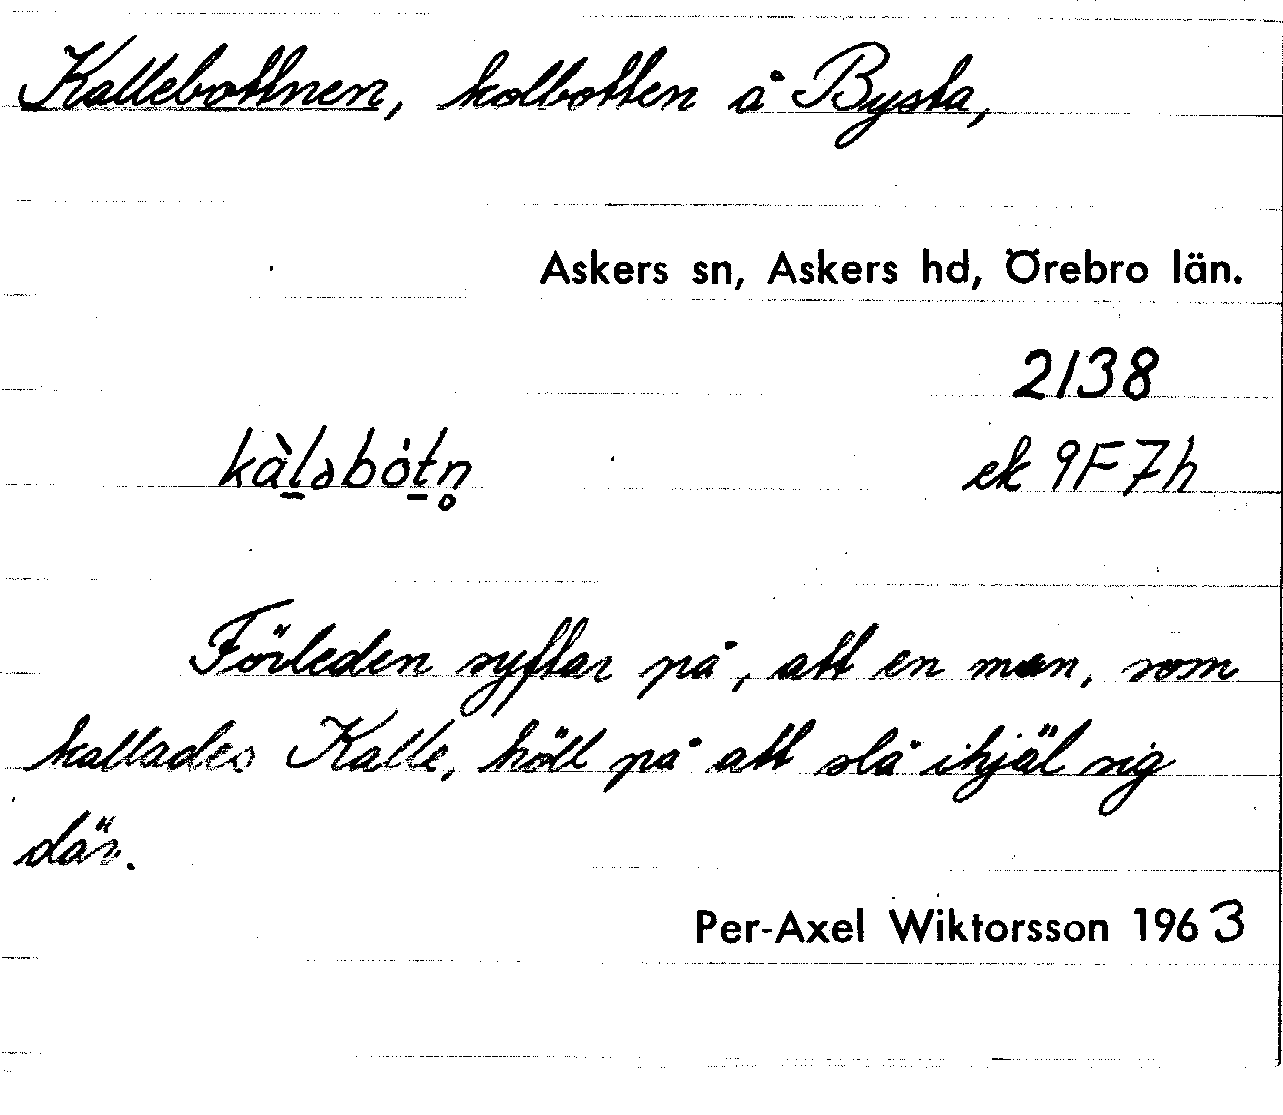 Kallebottnen, kolbotten å Bysta,
Askers sn, Askers hd, Örebro län.
2138
kàl̠əbòt̠n̥ ek 9F7h
Förleden syftar på, att en man, som
kallades Kalle, höll på att slå ihjäl sig
där.
Per-Axel Wiktorsson 1963